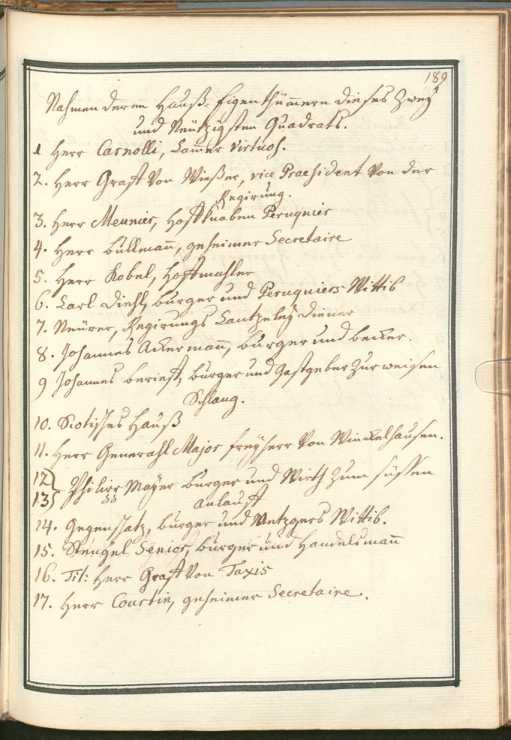 189
Nahmen deren Hauß-Eigenthümmern dieses Zwey
und Neützigsten Quadrats.
1 Herr Carnolli, Camer Virtuos.
2. Herr Graff Von Wießer, vice Praesident Von der
Regirung.
3. Herr Meunier, Hoffknaben Peruquier
4. Herr Büllmann, geheimer Secretaire
5. Herr Kobel, Hoffmahler
6. Carl Diehl, burger und Peruquiers Wittib
7. Neürer, Regirungs Cantzeley diener
8. Johannes Ackermann, burger und becker.
9 Johannes beriest, burger und Gastgeber Zur weisen
Schlang.
10. Sotisches Hauß
11. Herr Generahl Major freyherr Von Winckelhausen.
12
13 } Philipp Mayer burger und Wirth Zum süssen
anlauff
14. Gegenschatz, burger und Metzgers Wittib.
15. Stengel Senior, burger und Handelsmann
16. Tit: Herr Graff Von Taxis
17. Herr Courtin, geheimer Secretaire.